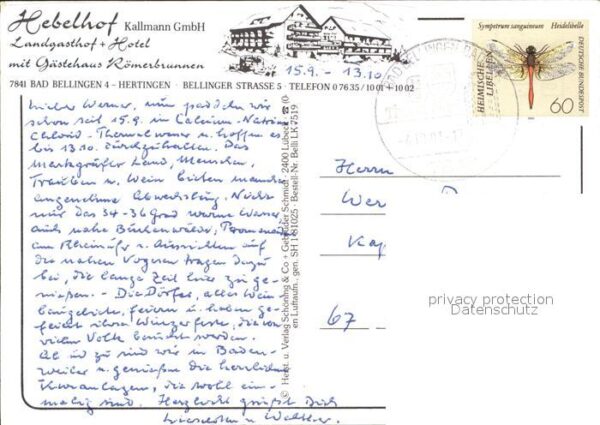 Hebelhof Kallmann GmbH
Landgasthof + Hotel
mit Gästehaus Römerbrunnen
15.9. – 13.10
7841 BAD BELLINGEN 4 - HERTINGEN · BELLINGER STRASSE 5 · TELEFON 07635/1001 + 1002
Sympetrum sanguineum Heidelibelle
HEIMISCHE LIBELLEN
DEUTSCHE BUNDESPOST
60
BAD BELLINGEN
Lieber Werner, nun paddeln wir
schon seit 15.9. in Calcium-Natrium
Chlorid-Thermalwasser u. hoffen es
bis 13.10. durchzuhalten. Das
Markgräfler Land, Menschen,
Trauben u. Wein bieten manche
angenehme Abwechslung. Nicht
nur das 34-36 Grad warme Wasser,
auch nahe Buchenwälder,
am Rheinufer u. Aussichten auf
die nahen Vogesen tragen dazu
bei, die lange Zeit hier zu ge-
nießen. - Die Dörfer, alles Wein-
baugebiete, feiern u. haben ge-
feiert ihre Winzerfeste, die von
vielen Volk besucht werden.
Ab u zu sind wir in Baden-
weiler u. genießen die herrlichen
Kuranlagen, die wohl ein-
malig sind. Herzlichst grüßt Dich
u. Walther.
© Herst. u. Verlag Schöning & Co + Gebrüder Schmidt · 2400 Lübeck
Luftaufn., gen. SH 1-81025 · Bestell-Nr. Belli LK 7519
Herrn
Wer
Kap
67
privacy protection
Datenschutz